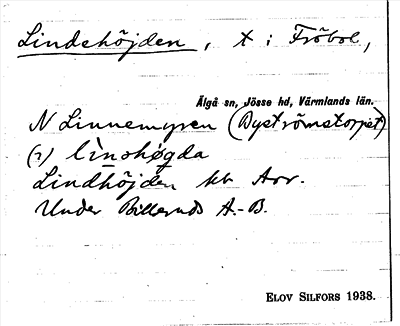 Lindehöjden, t i Fröbol,
Älgå sn, Jösse hd, Värmlands län.
N Linnemyren (Byströmstorpet)
(?) lìnəhøgda
Lindhöjden kb Arr.
Under Billeruds A.-B.
ELOV SILFORS 1938.